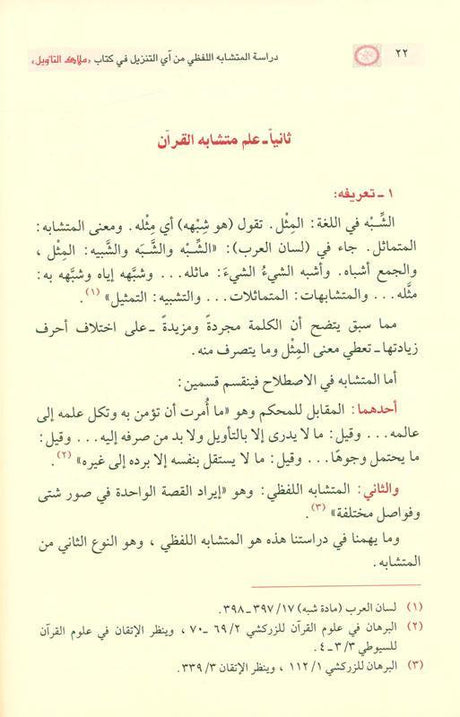 ٢٢ دراسة المتشابه اللفظي من آي التنزيل في كتاب «ملاك التأويل»
ثانياً ـ علم متشابه القرآن
١ ـ تعريفه:
الشِّبْه في اللغة: المِثْل. تقول (هو شِبْهه) أي مِثْله. ومعنى المتشابه:
المتماثل. جاء في (لسان العرب): «الشِّبْه والشَّبَه والشَّبيه: المِثْل ،
والجمع أشباه. وأشبه الشيءُ الشيءَ: ماثله... وشبَّهه إياه وشبَّهه به:
مثَّله... والمتشابهات: المتماثلات... والتشبيه: التمثيل» (١).
مما سبق يتضح أن الكلمة مجردةً ومزيدةً ـ على اختلاف أحرف
زيادتها ـ تعطي معنى المِثْل وما يتصرف منه.
أما المتشابه في الاصطلاح فينقسم قسمين:
أحدهما: المقابل للمحكم وهو «ما أُمرت أن تؤمن به وتكل علمه إلى
عالمه... وقيل: ما لا يدرى إلا بالتأويل ولا بد من صرفه إليه... وقيل:
ما يحتمل وجوهًا... وقيل: ما لا يستقل بنفسه إلا برده إلى غيره» (٢).
والثاني: المتشابه اللفظي: وهو «إيراد القصة الواحدة في صور شتى
وفواصل مختلفة» (٣).
وما يهمنا في دراستنا هذه هو المتشابه اللفظي ، وهو النوع الثاني من
المتشابه.
(١) لسان العرب (مادة شبه) ١٧/ ٣٩٧-٣٩٨.
(٢) البرهان في علوم القرآن للزركشي ٢/ ٦٩ ـ ٧٠ ، وينظر الإتقان في علوم القرآن
للسيوطي ٣/ ٣ ـ ٤.
(٣) البرهان للزركشي ١/ ١١٢ ، وينظر الإتقان ٣/ ٣٣٩.